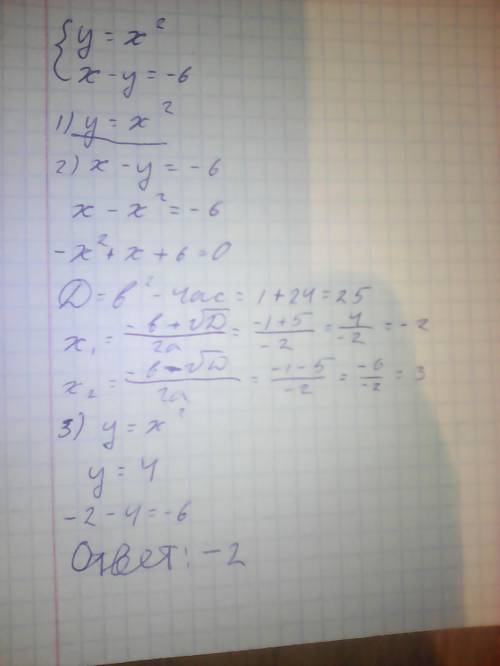 { y = x²
x - y = -6
1) y = x²
2) x - y = -6
x - x² = -6
-x² + x + 6 = 0
D = b² - 4ac = 1 + 24 = 25
x₁ = (-b + √D)/2a = (-1+5)/-2 = 4/-2 = -2
x₂ = (-b - √D)/2a = (-1-5)/-2 = -6/-2 = 3
3) y = x²
y = 4
-2 - 4 = -6
Ответ: -2